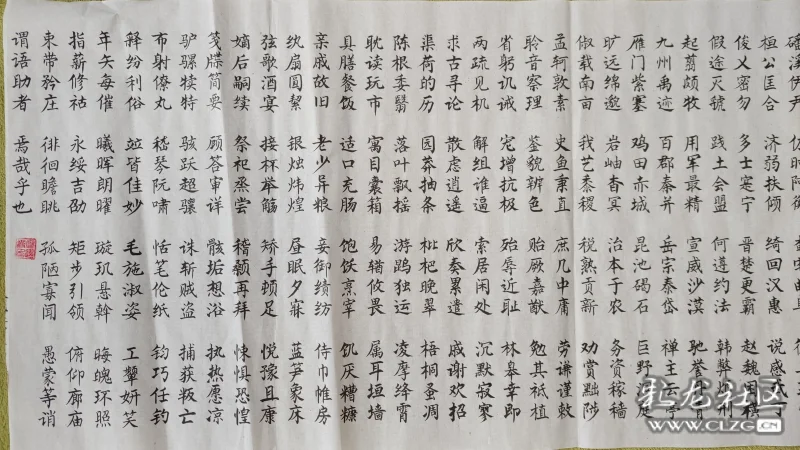 桓公匡合济弱扶倾绮回汉惠说感武丁
俊乂密勿多士寔宁晋楚更霸赵魏困横
假途灭虢践土会盟何遵约法韩弊烦刑
起翦颇牧用军最精宣威沙漠驰誉丹青
九州禹迹百郡秦并岳宗泰岱禅主云亭
雁门紫塞鸡田赤城昆池碣石巨野洞庭
旷远绵邈岩岫杳冥治本于农务资稼穑
俶载南亩我艺黍稷税熟贡新劝赏黜陟
孟轲敦素史鱼秉直庶几中庸劳谦谨敕
聆音察理鉴貌辨色贻厥嘉猷勉其祗植
省躬讥诫宠增抗极殆辱近耻林皋幸即
两疏见机解组谁逼索居闲处沉默寂寥
求古寻论散虑逍遥欣奏累遣戚谢欢招
渠荷的历园莽抽条枇杷晚翠梧桐蚤凋
陈根委翳落叶飘摇游鹍独运凌摩绛霄
耽读玩市寓目囊箱易輶攸畏属耳垣墙
具膳餐饭适口充肠饱饫烹宰饥厌糟糠
亲戚故旧老少异粮妾御绩纺侍巾帷房
纨扇圆絜银烛炜煌昼眠夕寐蓝笋象床
弦歌酒宴接杯举觞矫手顿足悦豫且康
嫡后嗣续祭祀蒸尝稽颡再拜悚惧恐惶
笺牒简要顾答审详骸垢想浴执热愿凉
驴骡犊特骇跃超骧诛斩贼盗捕获叛亡
布射僚丸嵇琴阮啸恬笔伦纸钧巧任钓
释纷利俗竝皆佳妙毛施淑姿工颦妍笑
年矢每催曦晖朗曜璇玑悬斡晦魄环照
指薪修祜永绥吉劭矩步引领俯仰廊庙
束带矜庄徘徊瞻眺孤陋寡闻愚蒙等诮
谓语助者焉哉乎也
化龙社区
WWW.CLZG.CN